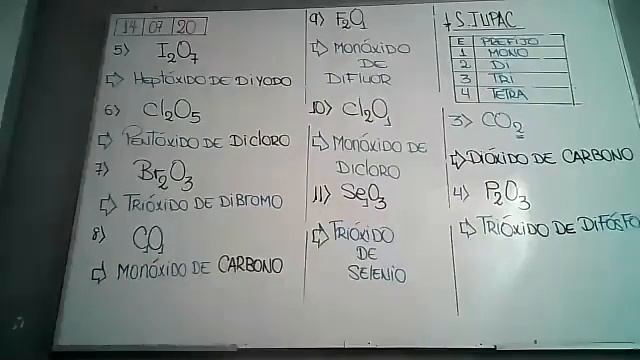 14 07 20
5) I₂O₇
⇨ HEPTÓXIDO DE DIYODO
6) Cl₂O₅
⇨ PENTÓXIDO DE DICLORO
7) Br₂O₃
⇨ TRIÓXIDO DE DIBROMO
8) CO₁
⇨ MONÓXIDO DE CARBONO
9) F₂O₁
⇨ MONÓXIDO
DE
DIFLUOR
10) Cl₂O₁
⇨ MONÓXIDO DE
DICLORO
11) Se₁O₃
⇨ TRIÓXIDO
DE
SELENIO
S. IUPAC
E PREFIJO
1 MONO
2 DI
3 TRI
4 TETRA
3) CO₂
⇨ DIÓXIDO DE CARBONO
4) P₂O₃
⇨ TRIÓXIDO DE DIFÓSFO